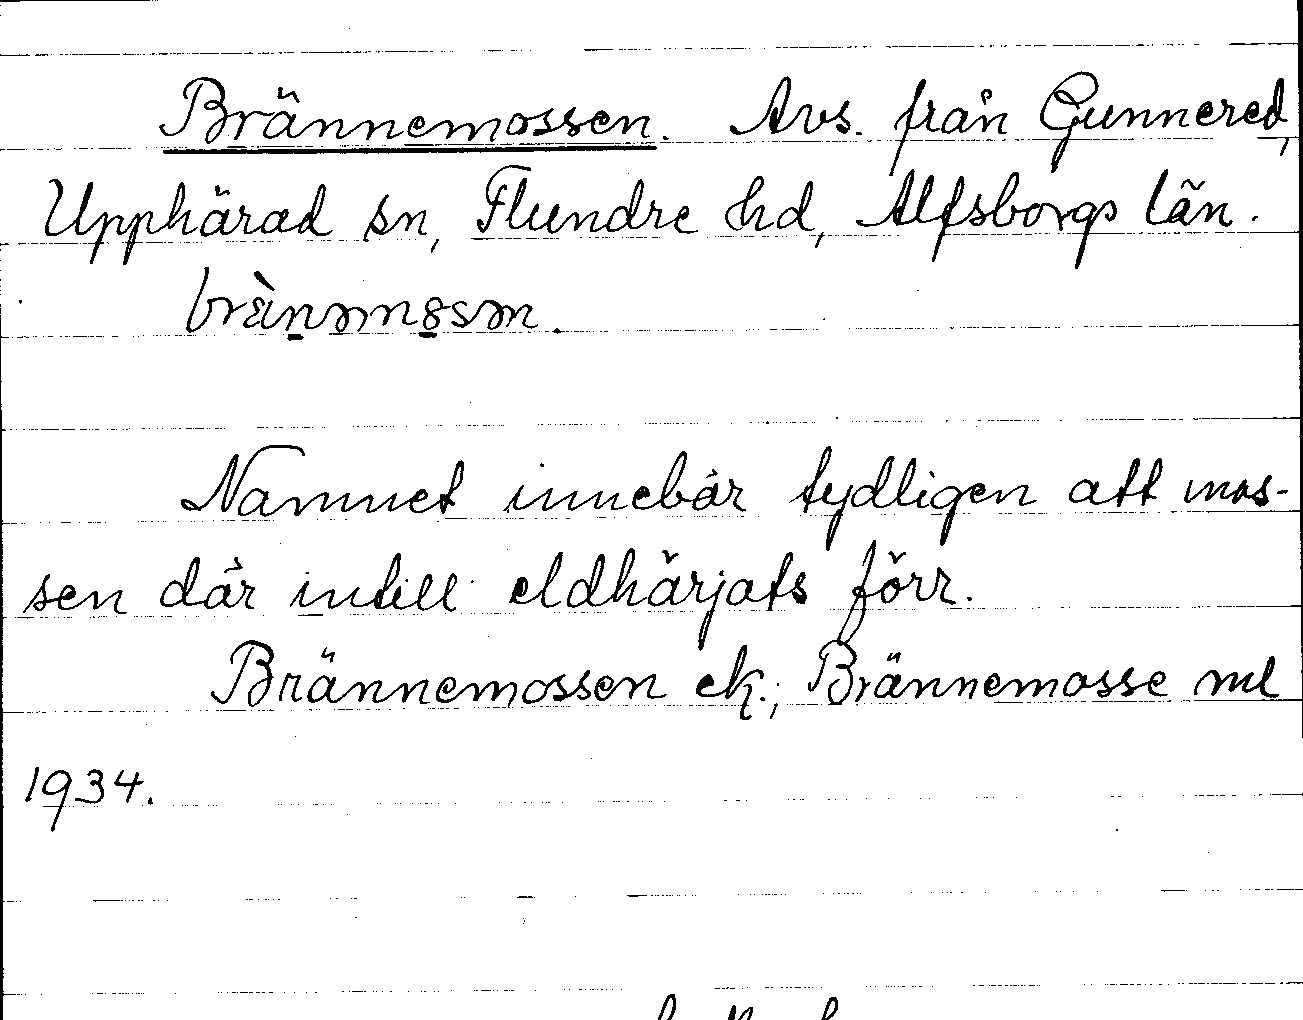 Brännemossen. Avs. från Gunnered,
Upphärad sn, Flundre hd, Älfsborgs län.
brànəmosən.
Namnet innebär tydligen att mos-
sen där intill eldhärjats förr.
Brännemossen ek.; Brännemosse ml
1934.